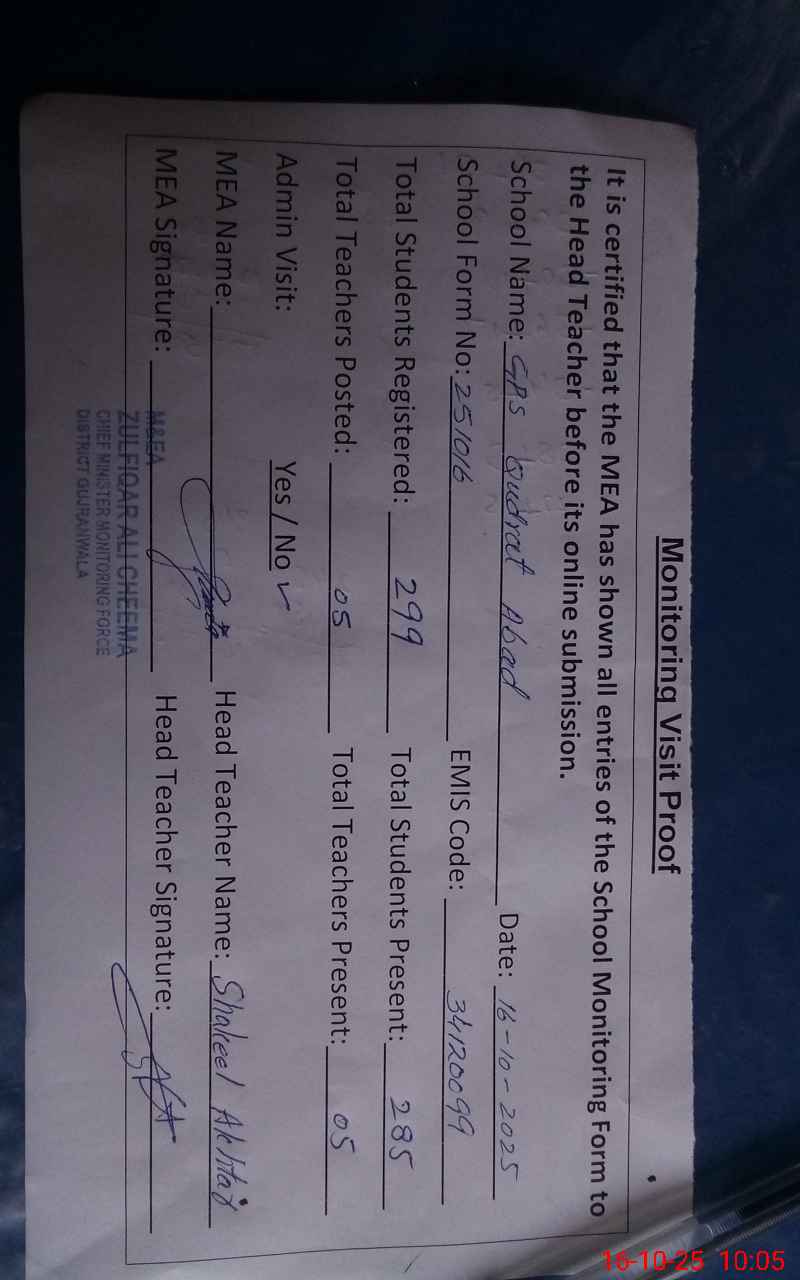 Monitoring Visit Proof
It is certified that the MEA has shown all entries of the School Monitoring Form to
the Head Teacher before its online submission.
School Name: GPS Qudrat Abad Date: 16-10-2025
School Form No: 251016 EMIS Code: 34120099
Total Students Registered: 299 Total Students Present: 285
Total Teachers Posted: 05 Total Teachers Present: 05
Admin Visit: Yes / No ✓
MEA Name: Head Teacher Name: Shakeel Akhtar
MEA Signature: Head Teacher Signature:
M&EA
ZULFIQAR ALI CHEEMA
CHIEF MINISTER MONITORING FORCE
DISTRICT GUJRANWALA
16-10-25 10:05